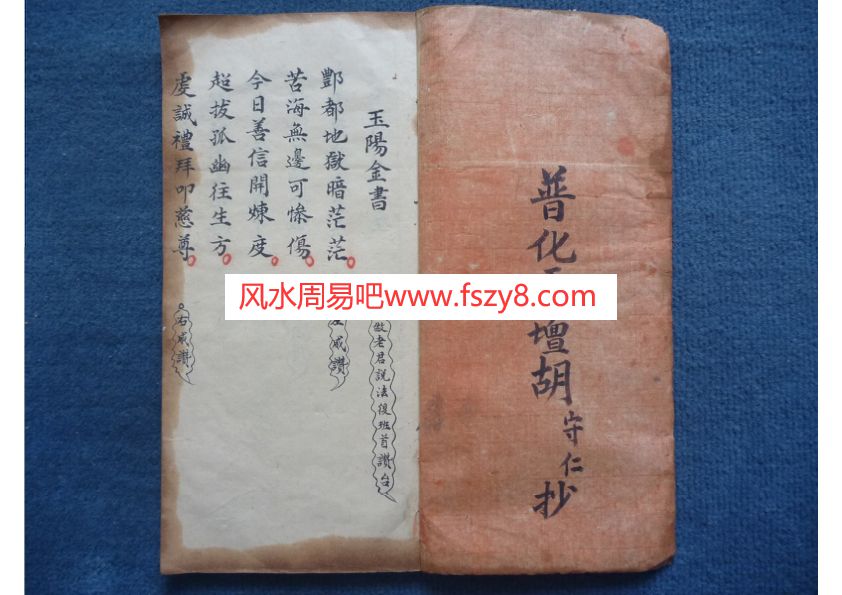 普化
壇胡守仁抄
玉陽金書
老君説法後班首讚台
酆都地獄暗茫茫
咸讚
苦海無邊可慘傷
今日善信開煉度
超拔孤幽往生方
虔誠禮拜叩慈尊
右咸讚
风水周易吧www.fszy8.com